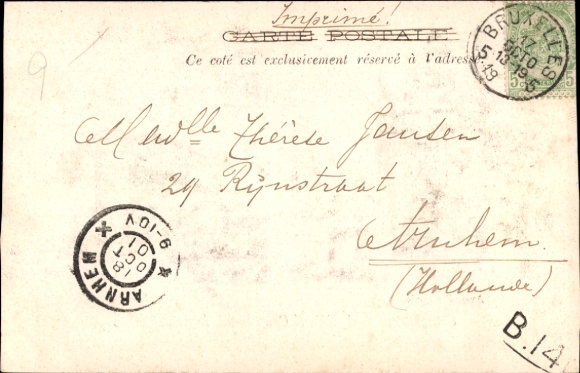 Imprimé!
CARTE POSTALE
Ce coté est exclusivement réservé à l'adresse
BRUXELLES
17
OCTO
13-19
5 5
19
5 5
9
Medlle Thérèse Jansen
29 Rijnstraat
Arnhem.
(Hollande)
ARNHEM
18
OCT
01
9-10V
4
B.14